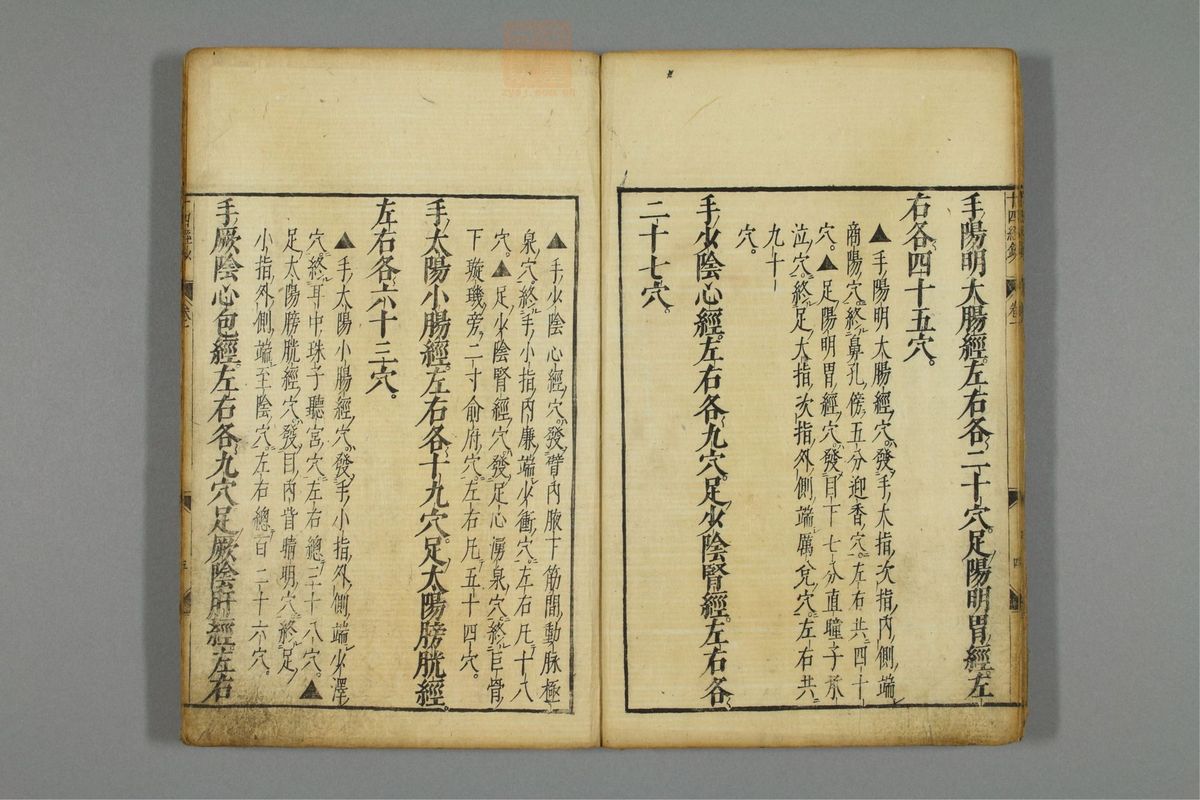 手陽明大腸經左右各二十穴。足陽明胃經左
右各四十五穴。
▲手陽明大腸經ノ穴發手ノ大指次指ノ內側ノ端
商陽ノ穴終鼻孔ノ傍五分迎香ノ穴左右共ニ四十
穴。▲足陽明胃經ノ穴發目ノ下七分直瞳子承
泣ノ穴終足ノ大指ノ次指外側ノ端厲兌穴左右共ニ
九十
穴。
手ノ少陰心經左右各九穴。足ノ少陰腎經左右各
二十七穴。
▲手ノ少陰心經ノ穴發臂內腋下筋間動脉極
泉ノ穴終手ノ小指ノ內廉ノ端少衝ノ穴左右凡テ十八
穴。▲足ノ少陰腎經ノ穴發足心湧泉ノ穴終巨骨ノ
下璇璣ノ旁二寸俞府ノ穴左右凡五十四穴。
手ノ太陽小腸經左右各十九穴。足ノ太陽膀胱經。
左右各六十三穴。
▲手ノ太陽小腸經ノ穴發手ノ小指ノ外側ノ端少澤ノ
穴終耳中ノ珠子聽宮ノ穴左右總三十八穴。▲
足ノ太陽膀胱經ノ穴發目ノ內眥睛明ノ穴終足ノ
小指ノ外側ノ端至陰ノ穴左右總百二十六穴。
手ノ厥陰心包經左右各九穴足ノ厥陰肝經左右
十四經
卷一
四
五